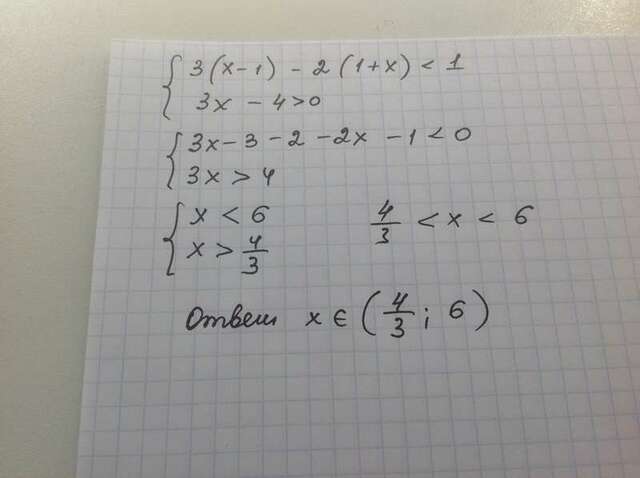 { 3(x-1) - 2(1+x) < 1
3x - 4 > 0
{ 3x - 3 - 2 - 2x - 1 < 0
3x > 4
{ x < 6
x > 4/3
4/3 < x < 6
Ответ x ∈ (4/3; 6)